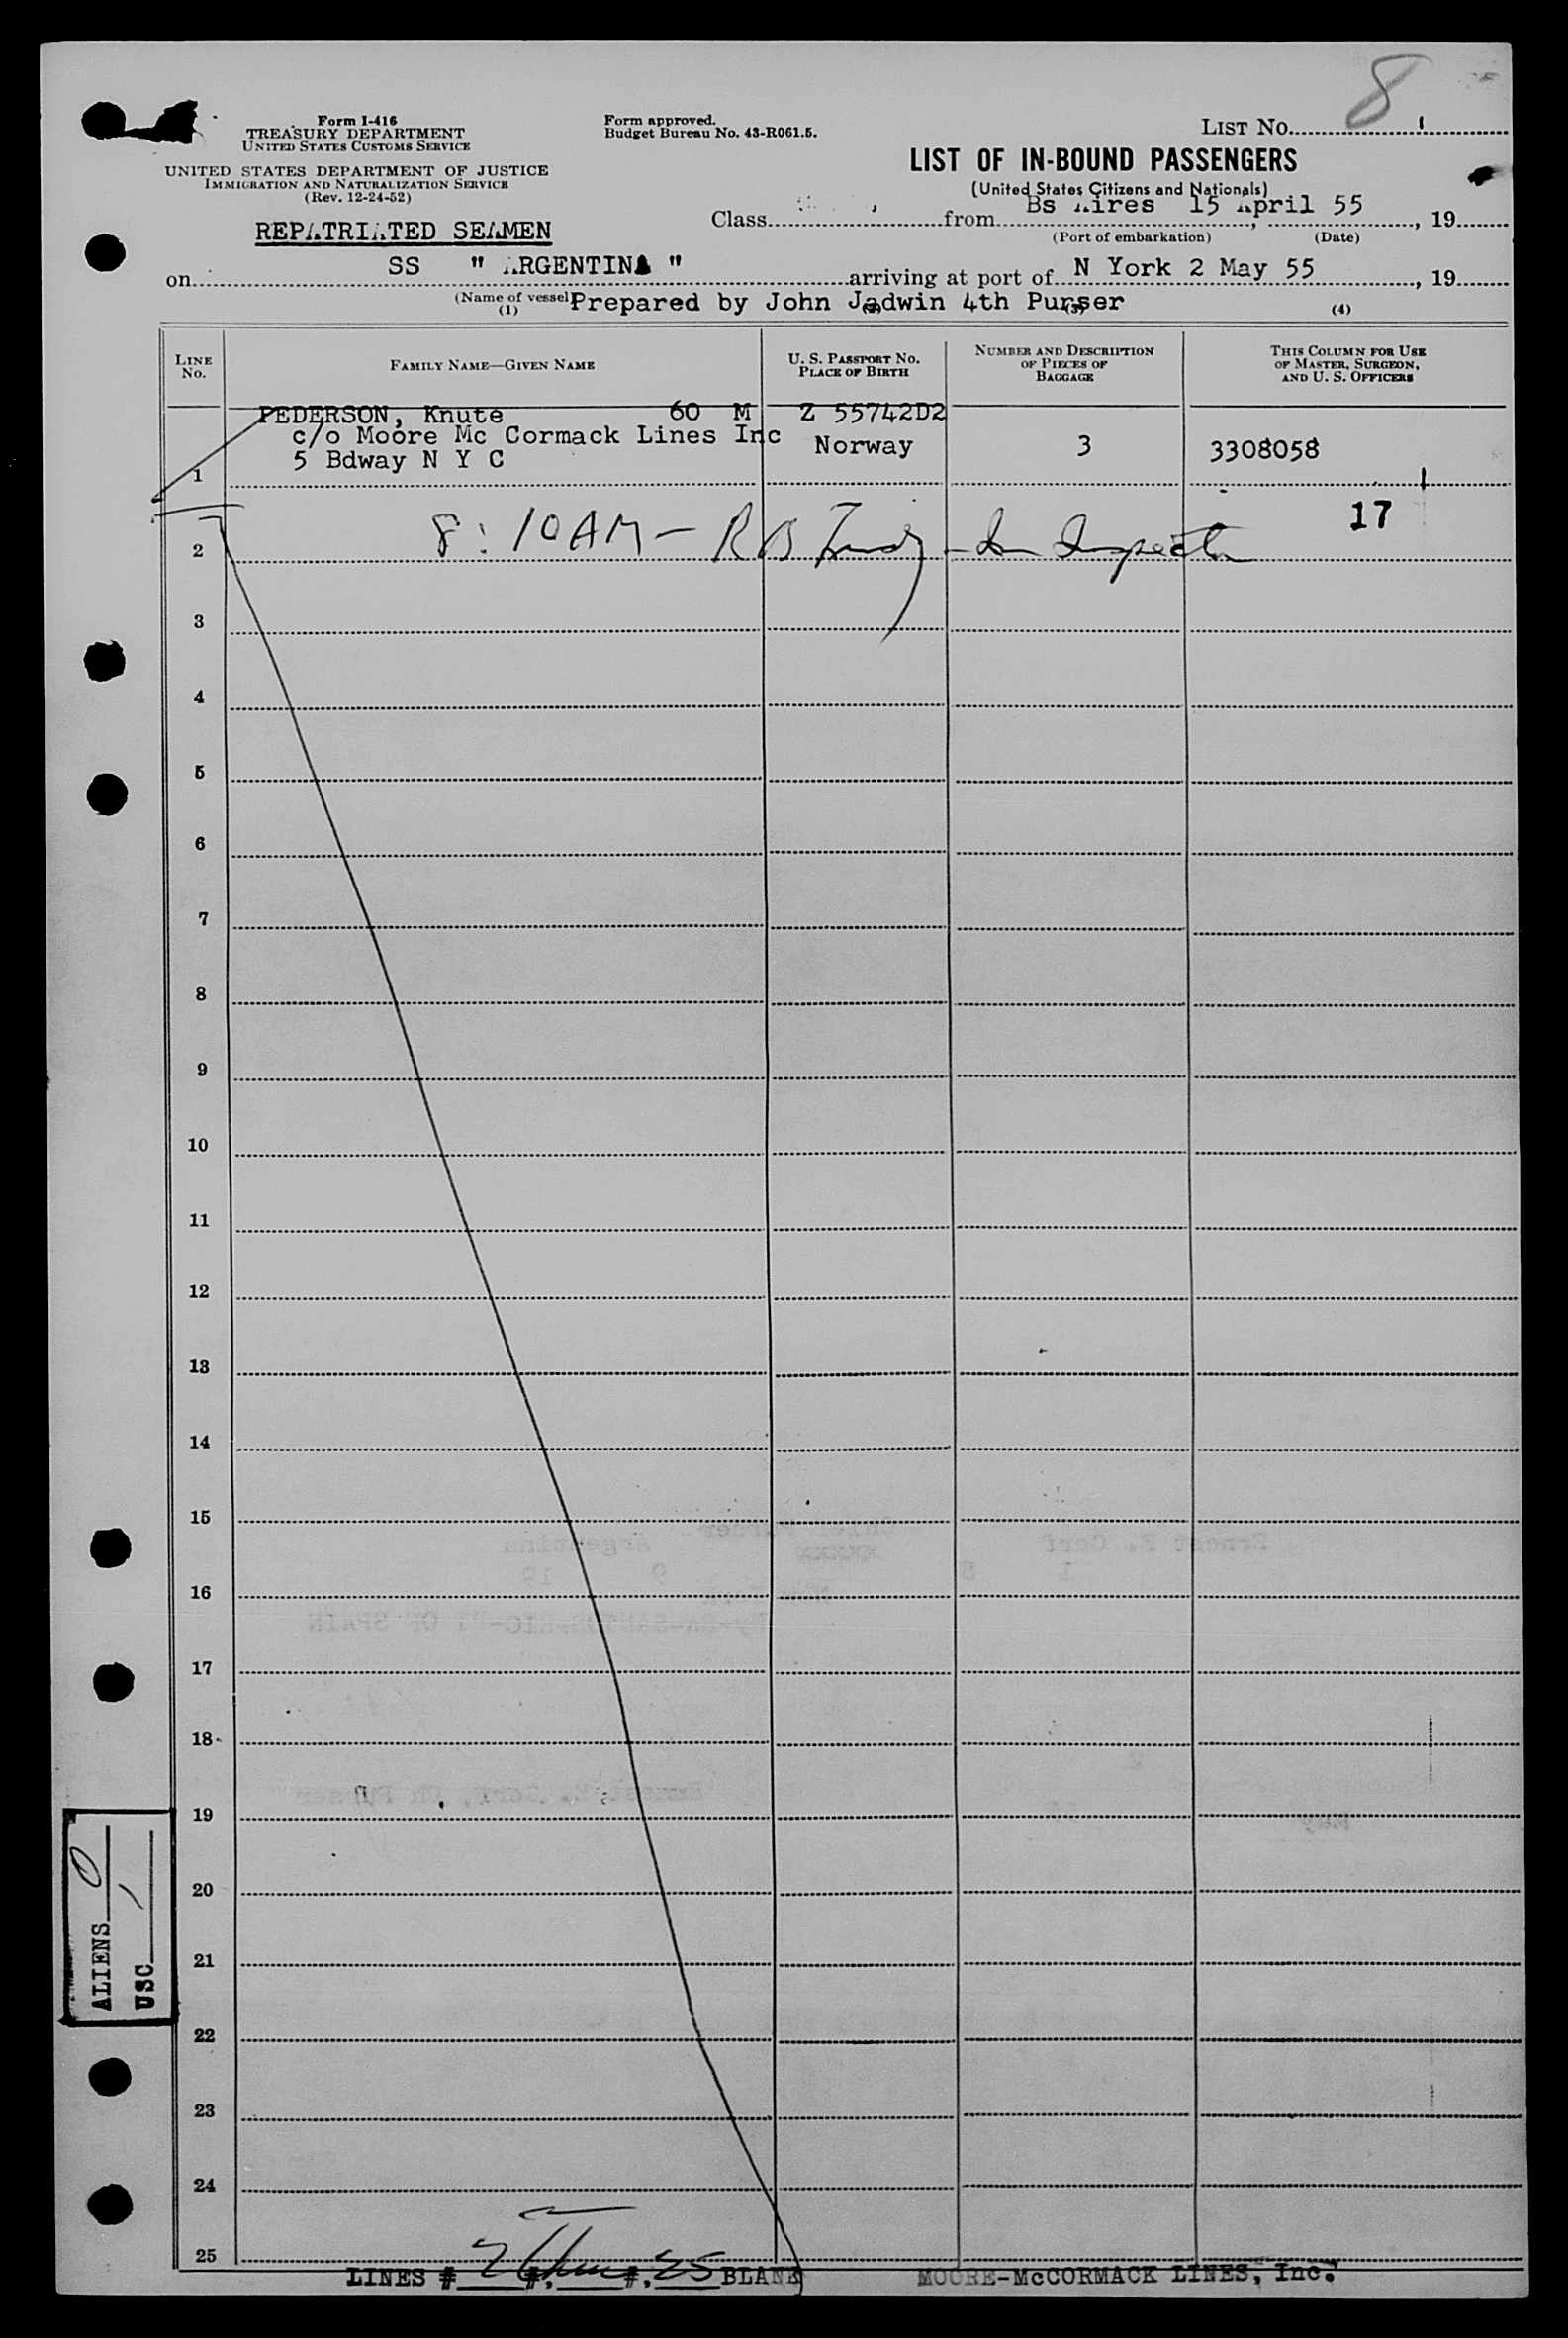 8
Form I-416
TREASURY DEPARTMENT
UNITED STATES CUSTOMS SERVICE
UNITED STATES DEPARTMENT OF JUSTICE
IMMIGRATION AND NATURALIZATION SERVICE
(Rev. 12-24-52)
Form approved.
Budget Bureau No. 43-R061.5.
LIST NO.
LIST OF IN-BOUND PASSENGERS
(United States Citizens and Nationals)
REPATRIATED SEAMEN
Class from Bs Aires 15 April 55, 19
(Port of embarkation) (Date)
on SS " ARGENTINA " arriving at port of N York 2 May 55, 19
(Name of vessel) Prepared by John Jadwin 4th Purser
(1) (2) (3) (4)
LINE NO. FAMILY NAME—GIVEN NAME U. S. PASSPORT NO. PLACE OF BIRTH NUMBER AND DESCRIPTION OF PIECES OF BAGGAGE THIS COLUMN FOR USE OF MASTER, SURGEON, AND U. S. OFFICERS
PEDERSON, Knute 60 M Z 55742D2
c/o Moore Mc Cormack Lines Inc Norway 3 3308058
5 Bdway N Y C
1
17
2 8:10AM - R B Inspector
3
4
5
6
7
8
9
10
11
12
13
14
15
16
17
18
19
20
21
22
23
24
25
ALIENS 0
USC 1
LINES # 2 #, #, 25 BLANK MOORE-McCORMACK LINES, Inc.